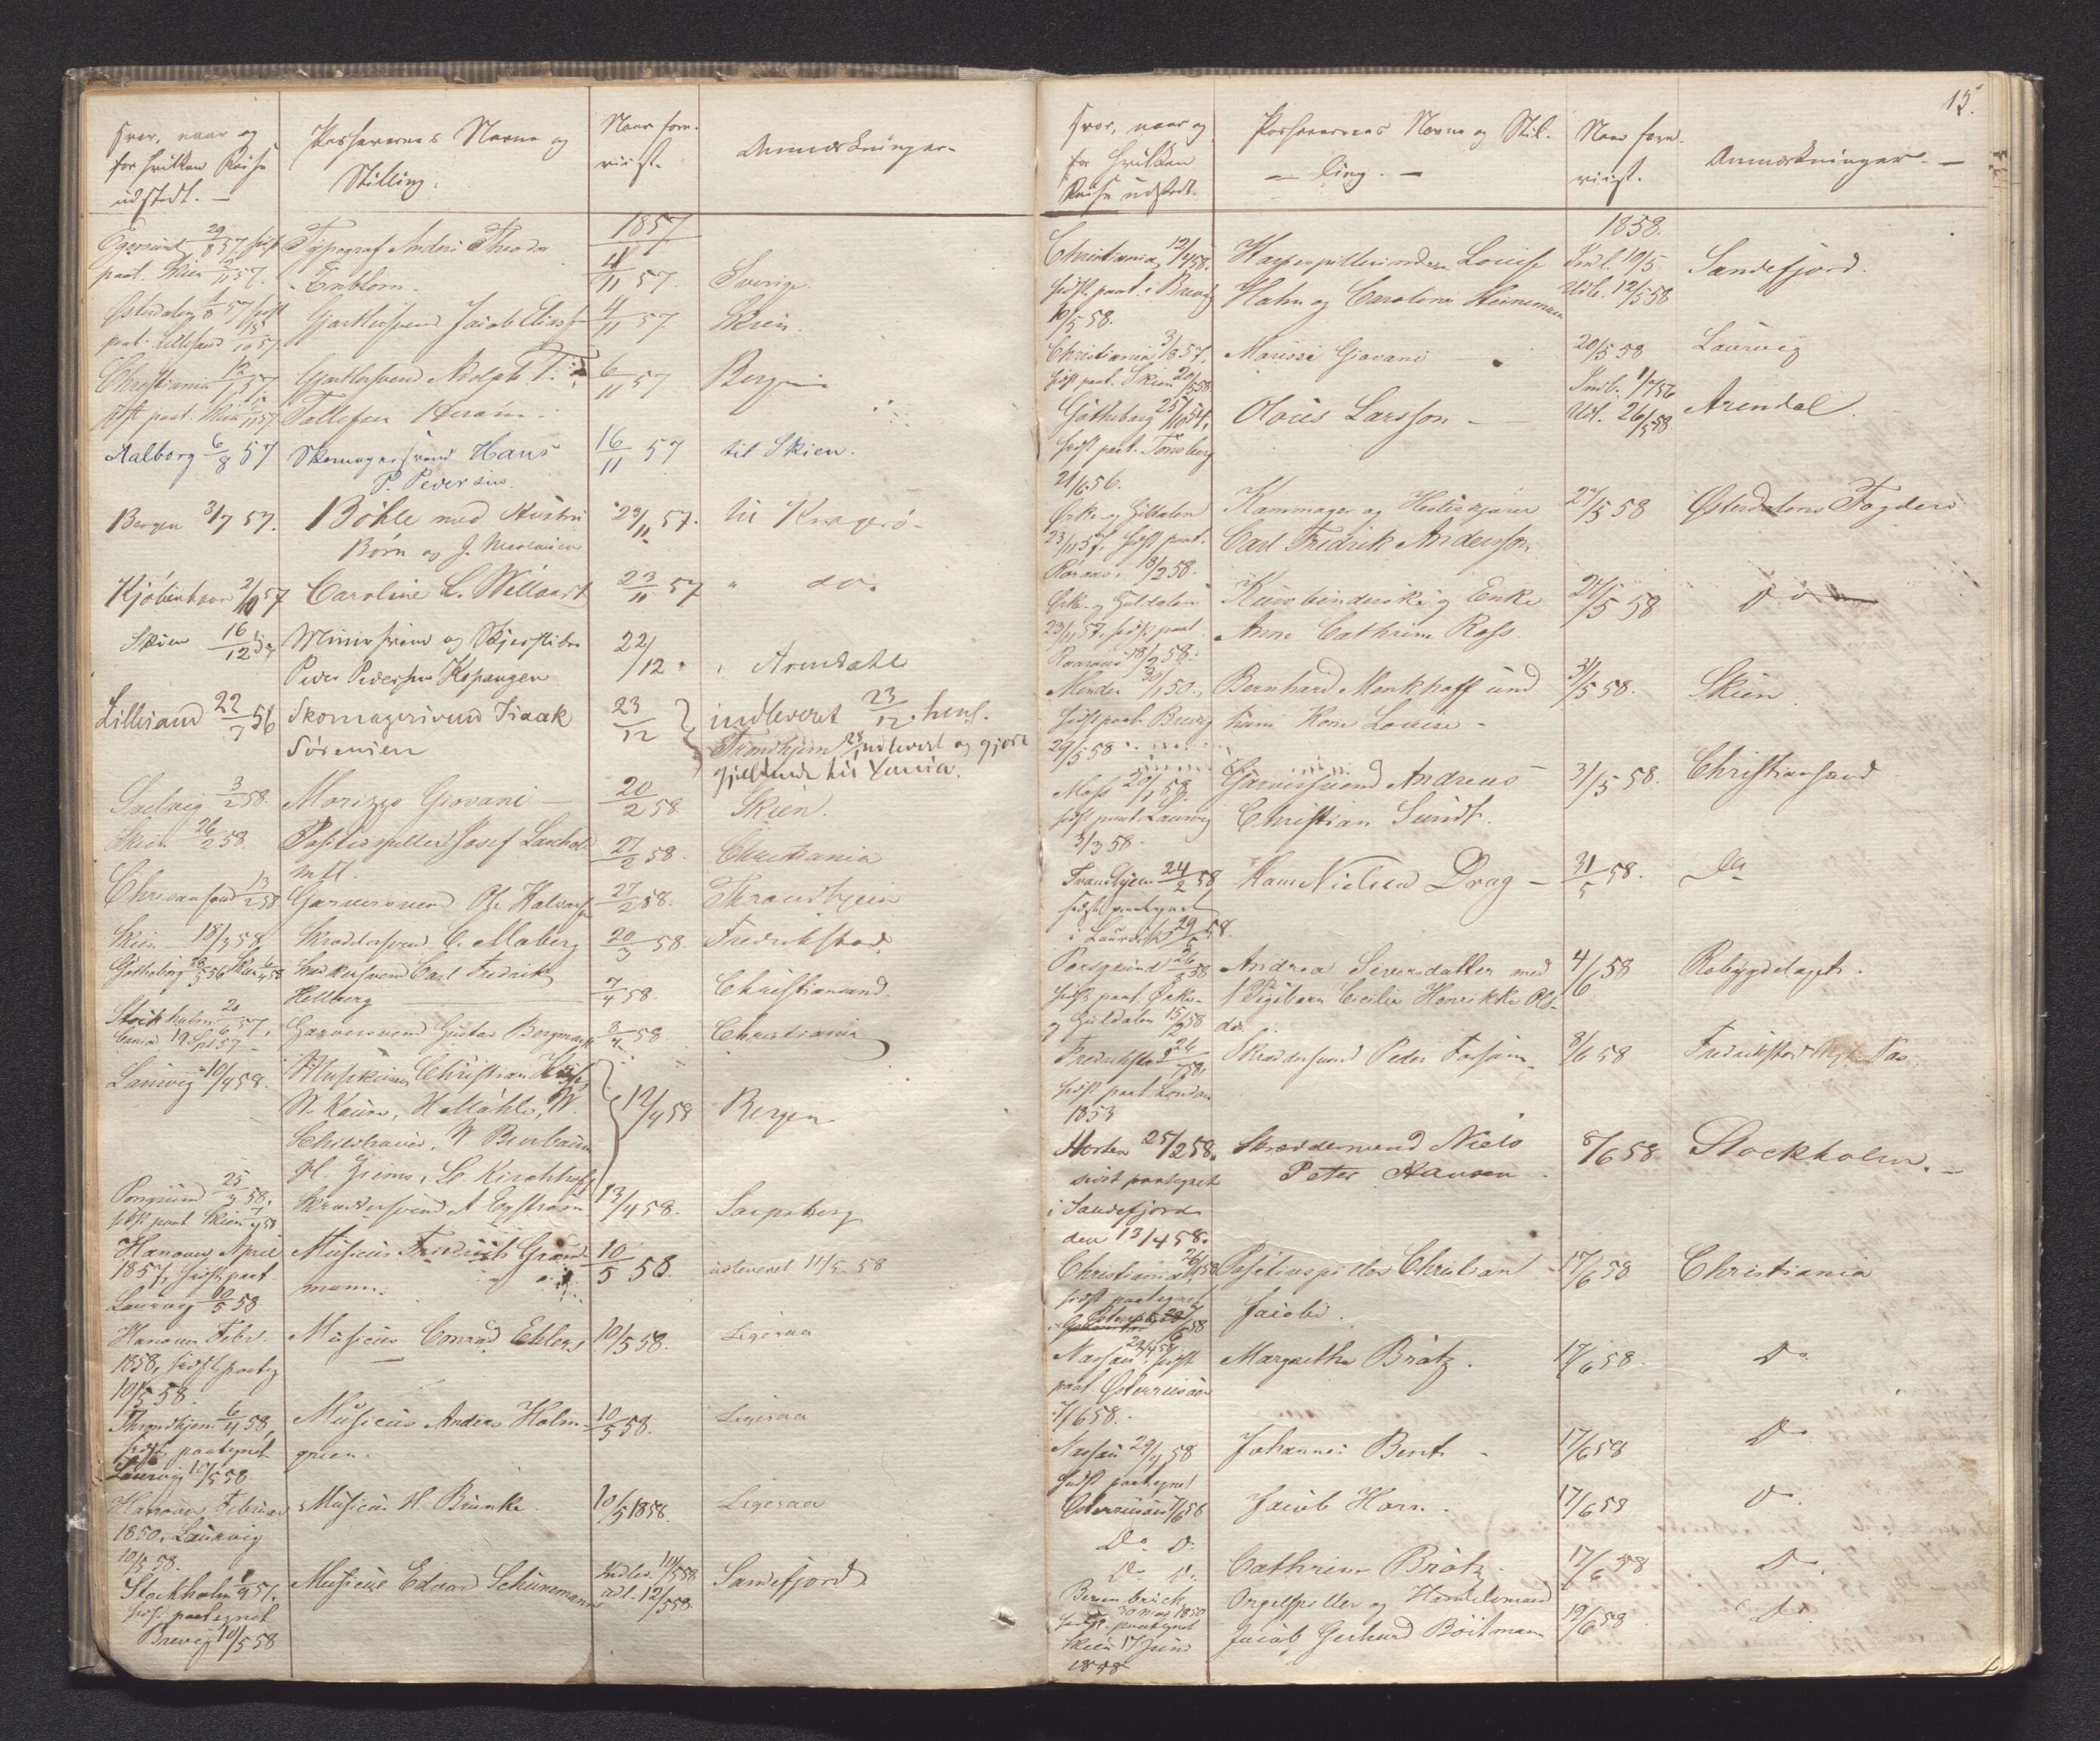 Hvor, naar og
for hvilken Reise
udstedt. —
Passhavernes Navne og
Stilling.
Naar fore-
viist.
Anmærkninger.
1857
Egersund 29/8 57 sidst
paat. Skien 2/11 57.
Typograf Anders Theodor
Enblom.
4/11 57.
Sverige.
Østerdalen 1/8 57 sidst
paat. Lillesand 15/10 57.
Gjørtlersvend Jacob Eliass
4/11 57
Skien.
Christiania 12/1 57
sidst paat. Skien 57
Gjørtlersvend Adolph T.
Tollefsen
6/11 57
Bergen
Aalborg 6/8 57
Skomagersvend Hans
P. Pedersen.
16/11 57
til Skien.
Bergen 3/7 57.
Böhle med Hustru
Børn og J. Nicolaisen
23/11 57.
til Kragerö.
Kjöbenhavn 2/10 57
Caroline L. Willaardt
23/11 57
" do.
Skien 16/12 57
Minersvend og Skjerstiber
Peder Pedersen Kopangen
22/12
Arendahl
Lillesand 22/7 56
Skomagersvend Isaak
Sörensen
23/12
indleveret 23/12. hens.
Trondhjem indleveret og gjort
gjeldende til Xania.
3/2 58.
Morizzo Giovani —
20/2 58
Skien.
Skien 26/2 58.
Positivspiller Josef
m fl.
27/2 58.
Christiania
Christiansand 13/2 58
Garversvend Ole Halvorsen
27/2 58.
Throndhjem
Skien 18/3 58
Skreddersvend C. Moberg
20/3 58.
Fredrikstad.
Götheborg 28/5 56 Skien 6/4 58
Snedkersvend Carl Fredrik
Hellberg
7/4 58.
Christiansand.
Stockholm 20/6 57,
19 Spt 57
Garversvend Gustav Bergmark
8/4 58
Christiania
Laurvig 10/4 58.
Musikeren Christian
W. Kaune, H Mähle, W.
H. Grems, L. Kirchhoff
12/4 58
Bergen
Porsgrund 25/3 58,
sidst paat Skien 7/4 58
Skreddersvend A Engstrøm
13/4 58.
Sarpsborg
Hanover April
1857, sidst paat
Laurvig 10/5 58
Musicus Friedrich Grund-
mann.
10/5 58
udleveret 11/5 58
Hanover Febr.
1858, sidst paateg
10/5 58.
Musicus Conrad Ehlers
10/5 58.
Ligesaa
Throndhjem 6/4 58,
sidst paategnet
Laurvig 10/5 58
Musicus Anders Holm-
green.
10/5 58.
Ligesaa
Hanover Februar
1850, Laurvig
10/5 58.
Musicus H. Brunke.
10/5 1858.
Ligesaa
Stockholm 1/9 57,
sidst paategnet
Brevig 10/5 58
Musicus Edvard Schünemann
Indlev. 10/5 58
udl. 12/5 58.
Sandefjord
15.
Hvor, naar og
for hvilken
Reise udstedt.
Passhavernes Navne og Stil-
— ling. —
Naar fore-
viist.
Anmærkninger. —
1858.
Christiania 12/4 58.
sidst paat. i Brevig
10/5 58.
Harpespillerinderne Louise
Hahn og Caroline Steinemann
Indl. 10/5
Udl. 12/5 58
Sandefjord.
Christiania 3/8 57,
sidst paat. Skien 20/5 58
Morissi Giovani —
20/5 58
Laurvig
Götheborg 25/10 54,
sidst paat. Tönsberg
21/6 56.
Olaus Larsson —
Indl. 1/7 56
Udl. 26/5 58
Arendal.
Orke- og Guldalen
23/11 57, sidst paat.
Röraas, 18/2 58.
Kammager og Hesteskjærer
Carl Fredrik Andersson
27/5 58
Østerdalens Fogderi
Orke- og Guldalen
23/11 57, sidst paat.
Röraas 18/2 58.
Kurvbinderske og Enke
Anne Cathrine Ross.
27/5 58
Do
Minden 30/1 50.,
sidst paat. Brevig
29/5 58
Bernhard Menkhoff und
hans Kone Louise —
31/5 58.
Skien
Moss 20/1 58.
sidst paat Laurvig
3/3 58.
Garversvend Andreas
Christian Sundt.
31/5 58.
Christiansand
Trondhjem 24/2 58
sidst paategnet
i Laurvig 29/5 58.
Hans Nielsen Drag —
31/5 58.
Do
Porsgrund 26/8 58
sidst paat. Orke-
og Guldalen 15/2 58
Andrea Siversdatter med
1 Pigebarn Cicilie Henrikke Ols-
dtr.
4/6 58
Robygdelagets.
Fredrikstad 26/7 58,
sidst paat London
1853
Skræddersvend Peder
8/6 58
Fredrikstad
Horten 25/2 58.
sidst paategnet
i Sandefjord
den 13/4 58.
Skræddersvend Niels
Peter Hansen
8/6 58
Stockholm. —
Christiania 26/4 58
sidst paategnet
Positivspiller Christian
Jacobi.
17/6 58
Christiania
Nassau 29/4 58 sidst
paat. Østerriisøer
7/6 58.
Margrethe Brätz.
17/6 58.
Do
Nassau 29/4 58
sidst paategnet
Østerriisøer 7/6 58
Johannes Bent
17/6 58
Do
Do Do
Jacob Horn.
17/6 58
Do
Do Do
Cathrine Brätz.
17/6 58
Do
Bersenbrück
30 May 1850
sidst paategnet
Skien 17 Juni
1858
Orgelspiller og Handelsmand
Jacob Gerhard Böitmann
19/6 58
Do